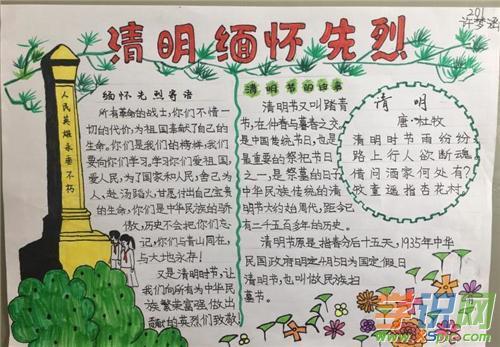 201
许梦涵
清明缅怀先烈
人民英雄永垂不朽
缅怀先烈寄语
所有革命的战士,你们不惜一
切的代价,为祖国奉献了自己的生
命。你们是我们的榜样,我们
要向你们学习。学习你们爱祖国,
爱人民,为了国家和人民,舍己为
人、赴汤蹈火,甘愿付出自己宝贵
的生命,你们是中华民族的骄
傲,历史不会把你们忘
记,你们与青山同在,
与大地永存!
又是清明时节,让
我们向所有为中华民
族繁荣富强做出
贡献的英烈们致敬
清明节的由来
清明节又叫踏青
节,在仲春与暮春之交,
是中国传统节日,也是
最重要的祭祀节日
之一,是祭墓的日子
中华民族传统的清
明节大约始周代,距今已
有二千五百多年的历史。
清明节原是指春分后十五天,1935年中华
民国政府明定4月5日为国定假日
清明节,也叫做民族扫
墓节。
清明
唐·杜牧
清明时节雨纷纷
路上行人欲断魂
借问酒家何处有?
牧童遥指杏花村
学识网
www.xspic.com